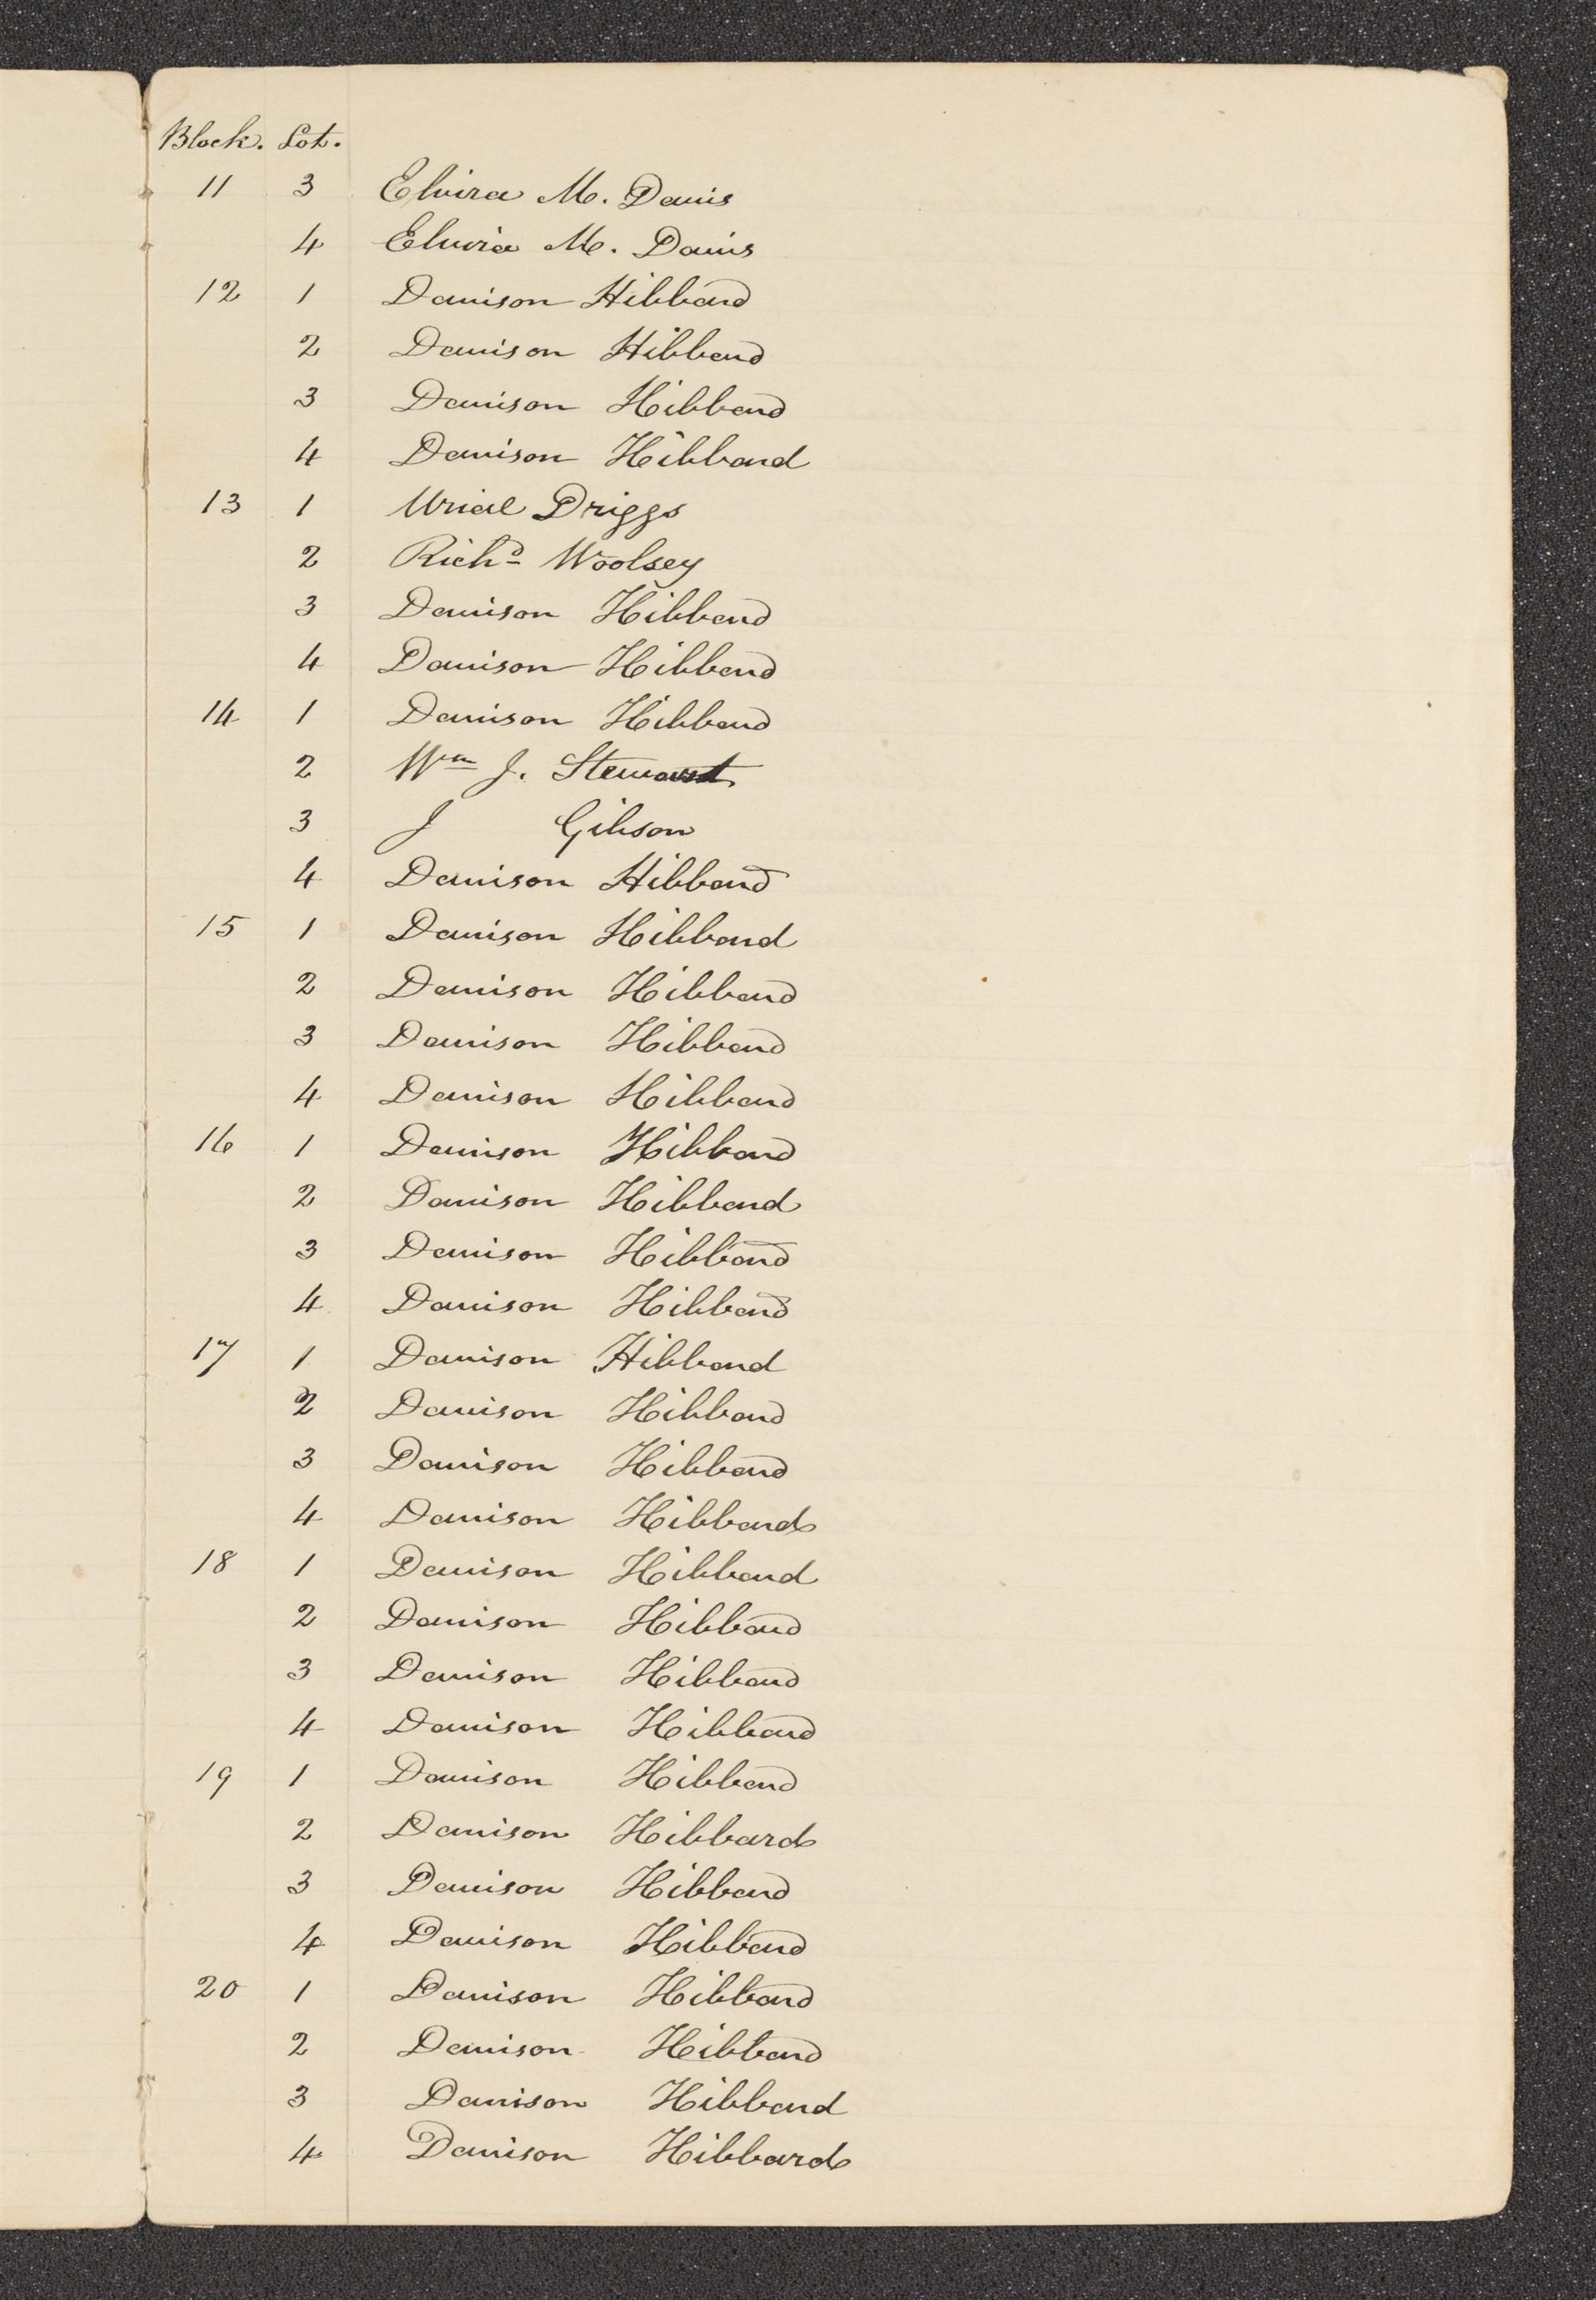 Block. Lot.
11 3 Elvira M. Davis
4 Elvira M. Davis
12 1 Davison Hibbard
2 Davison Hibbard
3 Davison Hibbard
4 Davison Hibbard
13 1 Urial Driggs
2 Richd Woolsey
3 Davison Hibbard
4 Davison Hibbard
14 1 Davison Hibbard
2 Wm J. Stewart
3 J Gibson
4 Davison Hibbard
15 1 Davison Hibbard
2 Davison Hibbard
3 Davison Hibbard
4 Davison Hibbard
16 1 Davison Hibbard
2 Davison Hibbard
3 Davison Hibbard
4 Davison Hibbard
17 1 Davison Hibbard
2 Davison Hibbard
3 Davison Hibbard
4 Davison Hibbard
18 1 Davison Hibbard
2 Davison Hibbard
3 Davison Hibbard
4 Davison Hibbard
19 1 Davison Hibbard
2 Davison Hibbard
3 Davison Hibbard
4 Davison Hibbard
20 1 Davison Hibbard
2 Davison Hibbard
3 Davison Hibbard
4 Davison Hibbard